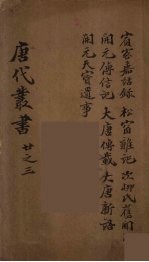 賓客嘉話錄 松窗雜記 次柳氏舊聞
開元傳信記 大唐傳載 大唐新語
開元天寶遺事
唐代叢書 廿之三